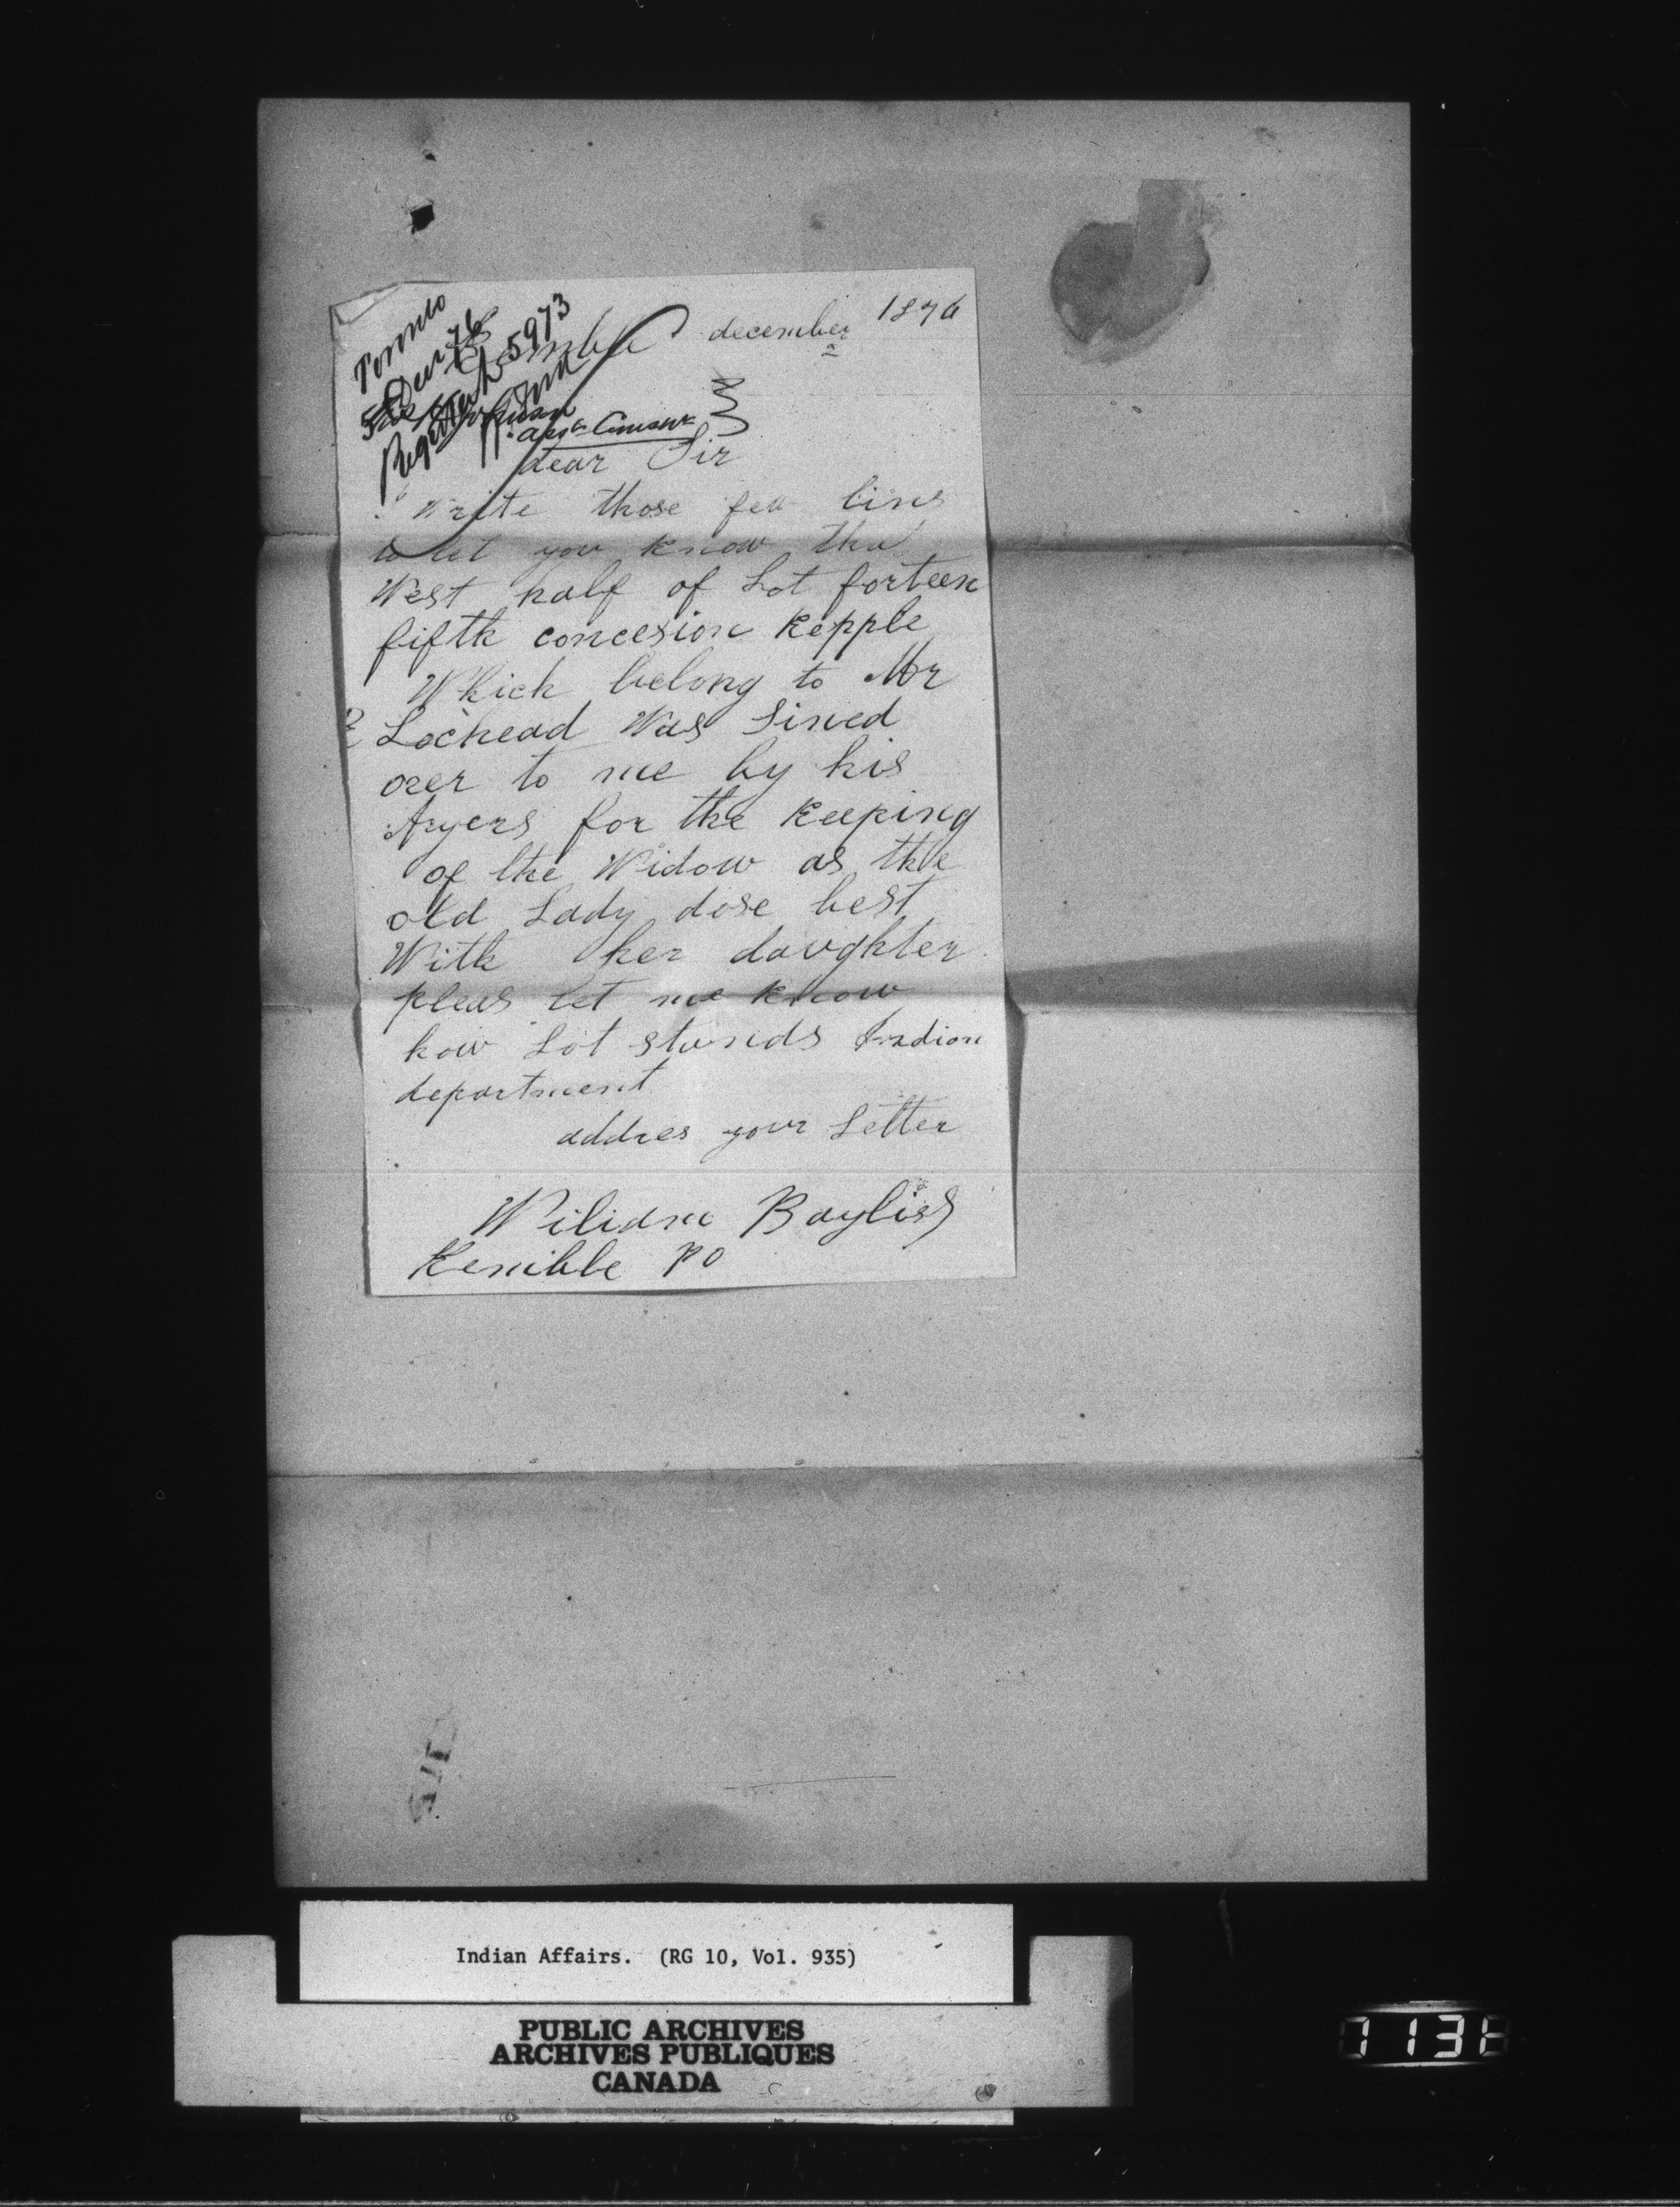 december 1876
2
Toronto
5973
dear Sir
i Write those few lins
to let you know tha
West half of Lot forteen
fifth concesion Kepple
Which belong to Mr
Lochead Was Sined
over to me by his
Ayers for the Keeping
of the Widow as the
old Lady dose best
With her daughter
pleas let me know
how Lot stands Indian
department
addres your Letter
Wiliam Bayliss
Kemble PO
Indian Affairs. (RG 10, Vol. 935)
PUBLIC ARCHIVES
ARCHIVES PUBLIQUES
CANADA